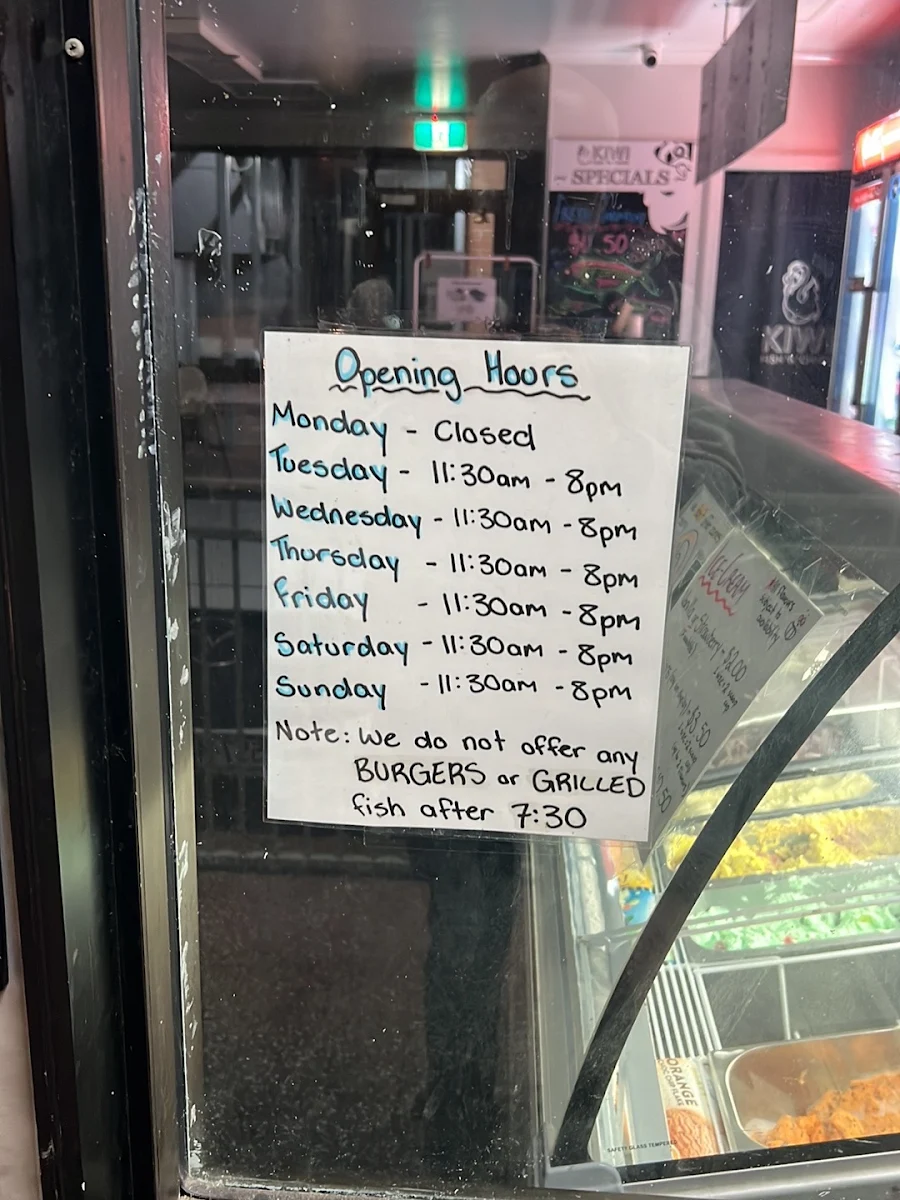 KIWI
SPECIALS
KIWI
Opening Hours
Monday - Closed
Tuesday - 11:30am - 8pm
Wednesday - 11:30am - 8pm
Thursday - 11:30am - 8pm
Friday - 11:30am - 8pm
Saturday - 11:30am - 8pm
Sunday - 11:30am - 8pm
Note: We do not offer any
BURGERS or GRILLED
fish after 7:30
ICE-CREAM
$2.00
$3.50
ORANGE
CHOC CHIP FLAKE
SAFETY GLASS TEMPERED